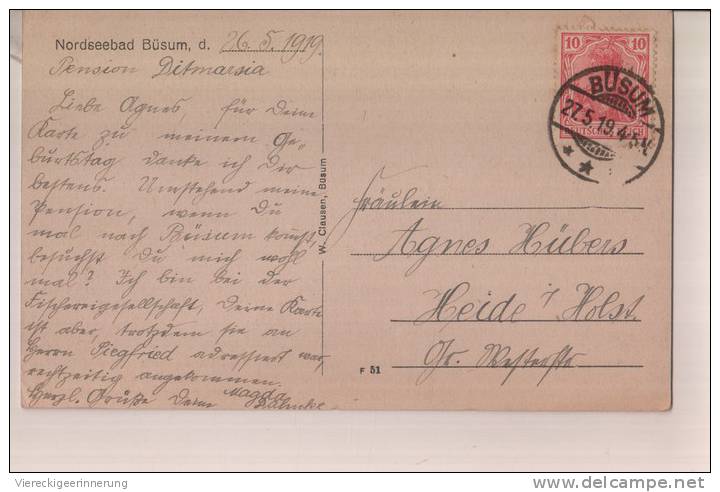 Nordseebad Büsum, d. 26. 5. 1919.
Pension Ditmarsia
Liebe Agnes, für Deine
Karte zu meinem Ge-
burtstag danke ich Dir
bestens. Umstehend meine
Pension, wenn Du
mal nach Büsum kommst,
besuchst Du mich wohl
mal? Ich bin bei der
Fischereigesellschaft, Deine Karte
ist aber, trotzdem sie an
Herrn Siegfried adressiert war,
rechtzeitig angekommen.
Herzl. Grüße Deine Magda
W. Clausen, Büsum
10 10
DEUTSCHES REICH
BÜSUM
27.5.19.4-5N.
Fräulein
Agnes Hübers
Heide i/ Holst.
Gr. Westerstr.
F 51
Viereckigeerinnerung
www.delcampe.net